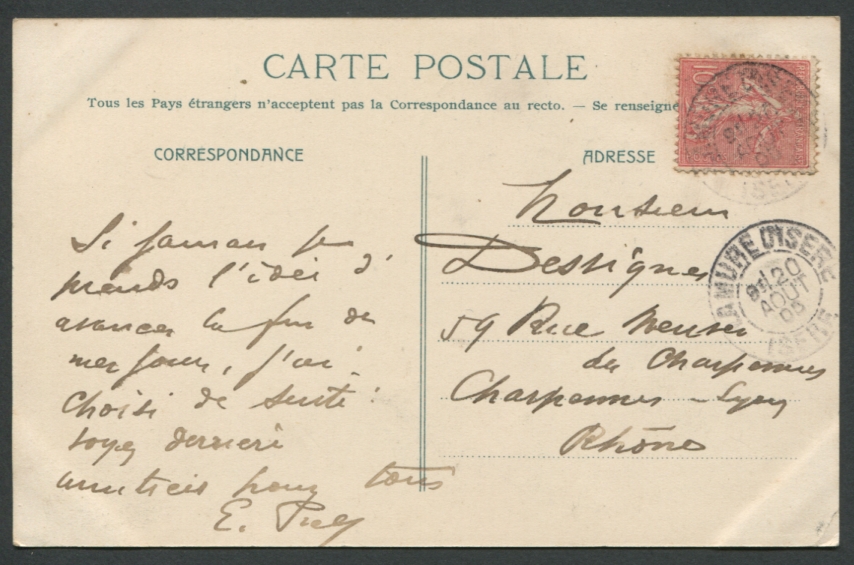 CARTE POSTALE
Tous les Pays étrangers n'acceptent pas la Correspondance au recto. — Se renseigne
CORRESPONDANCE
ADRESSE
10
Si jamais je
prends l'idée d'
avancer la fin de
mes jours, j'ai
choisi de suite
derrière
amitiés pour tous
E.
Monsieur
Dessignes
59 Rue
des Charpennes
Charpennes - Lyon
Rhône
LAMURE D'ISERE
20
AOUT
05
ISERE